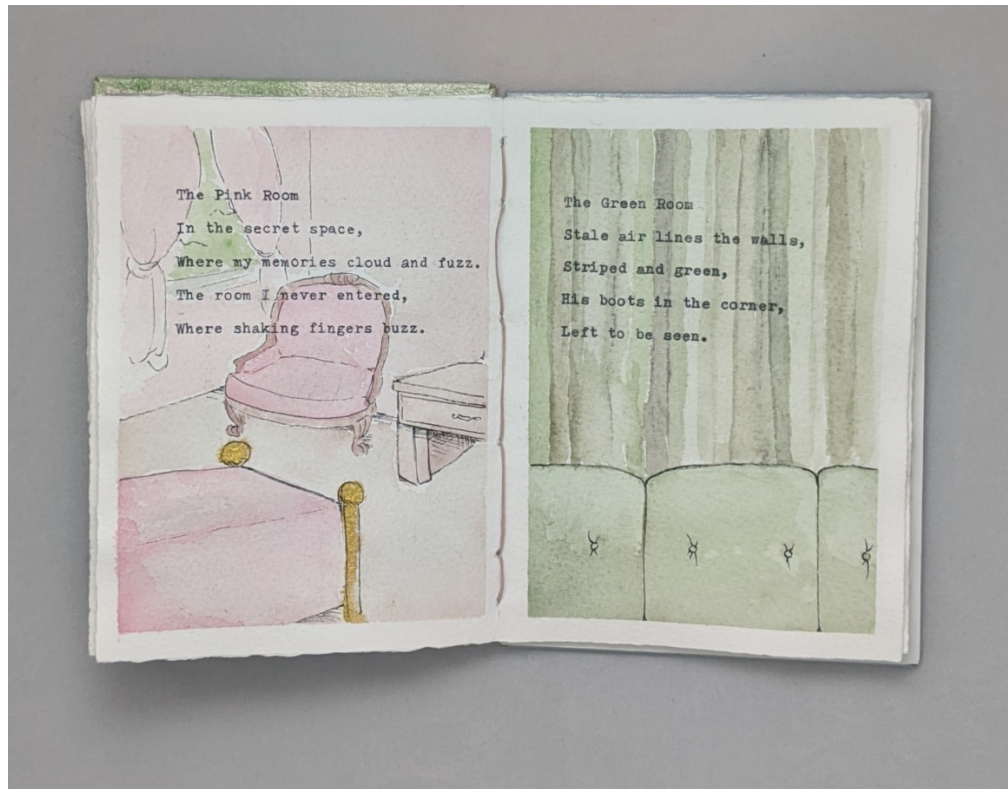 The Pink Room
In the secret space,
Where my memories cloud and fuzz.
The room I never entered,
Where shaking fingers buzz.
The Green Room
Stale air lines the walls,
Striped and green,
His boots in the corner,
Left to be seen.